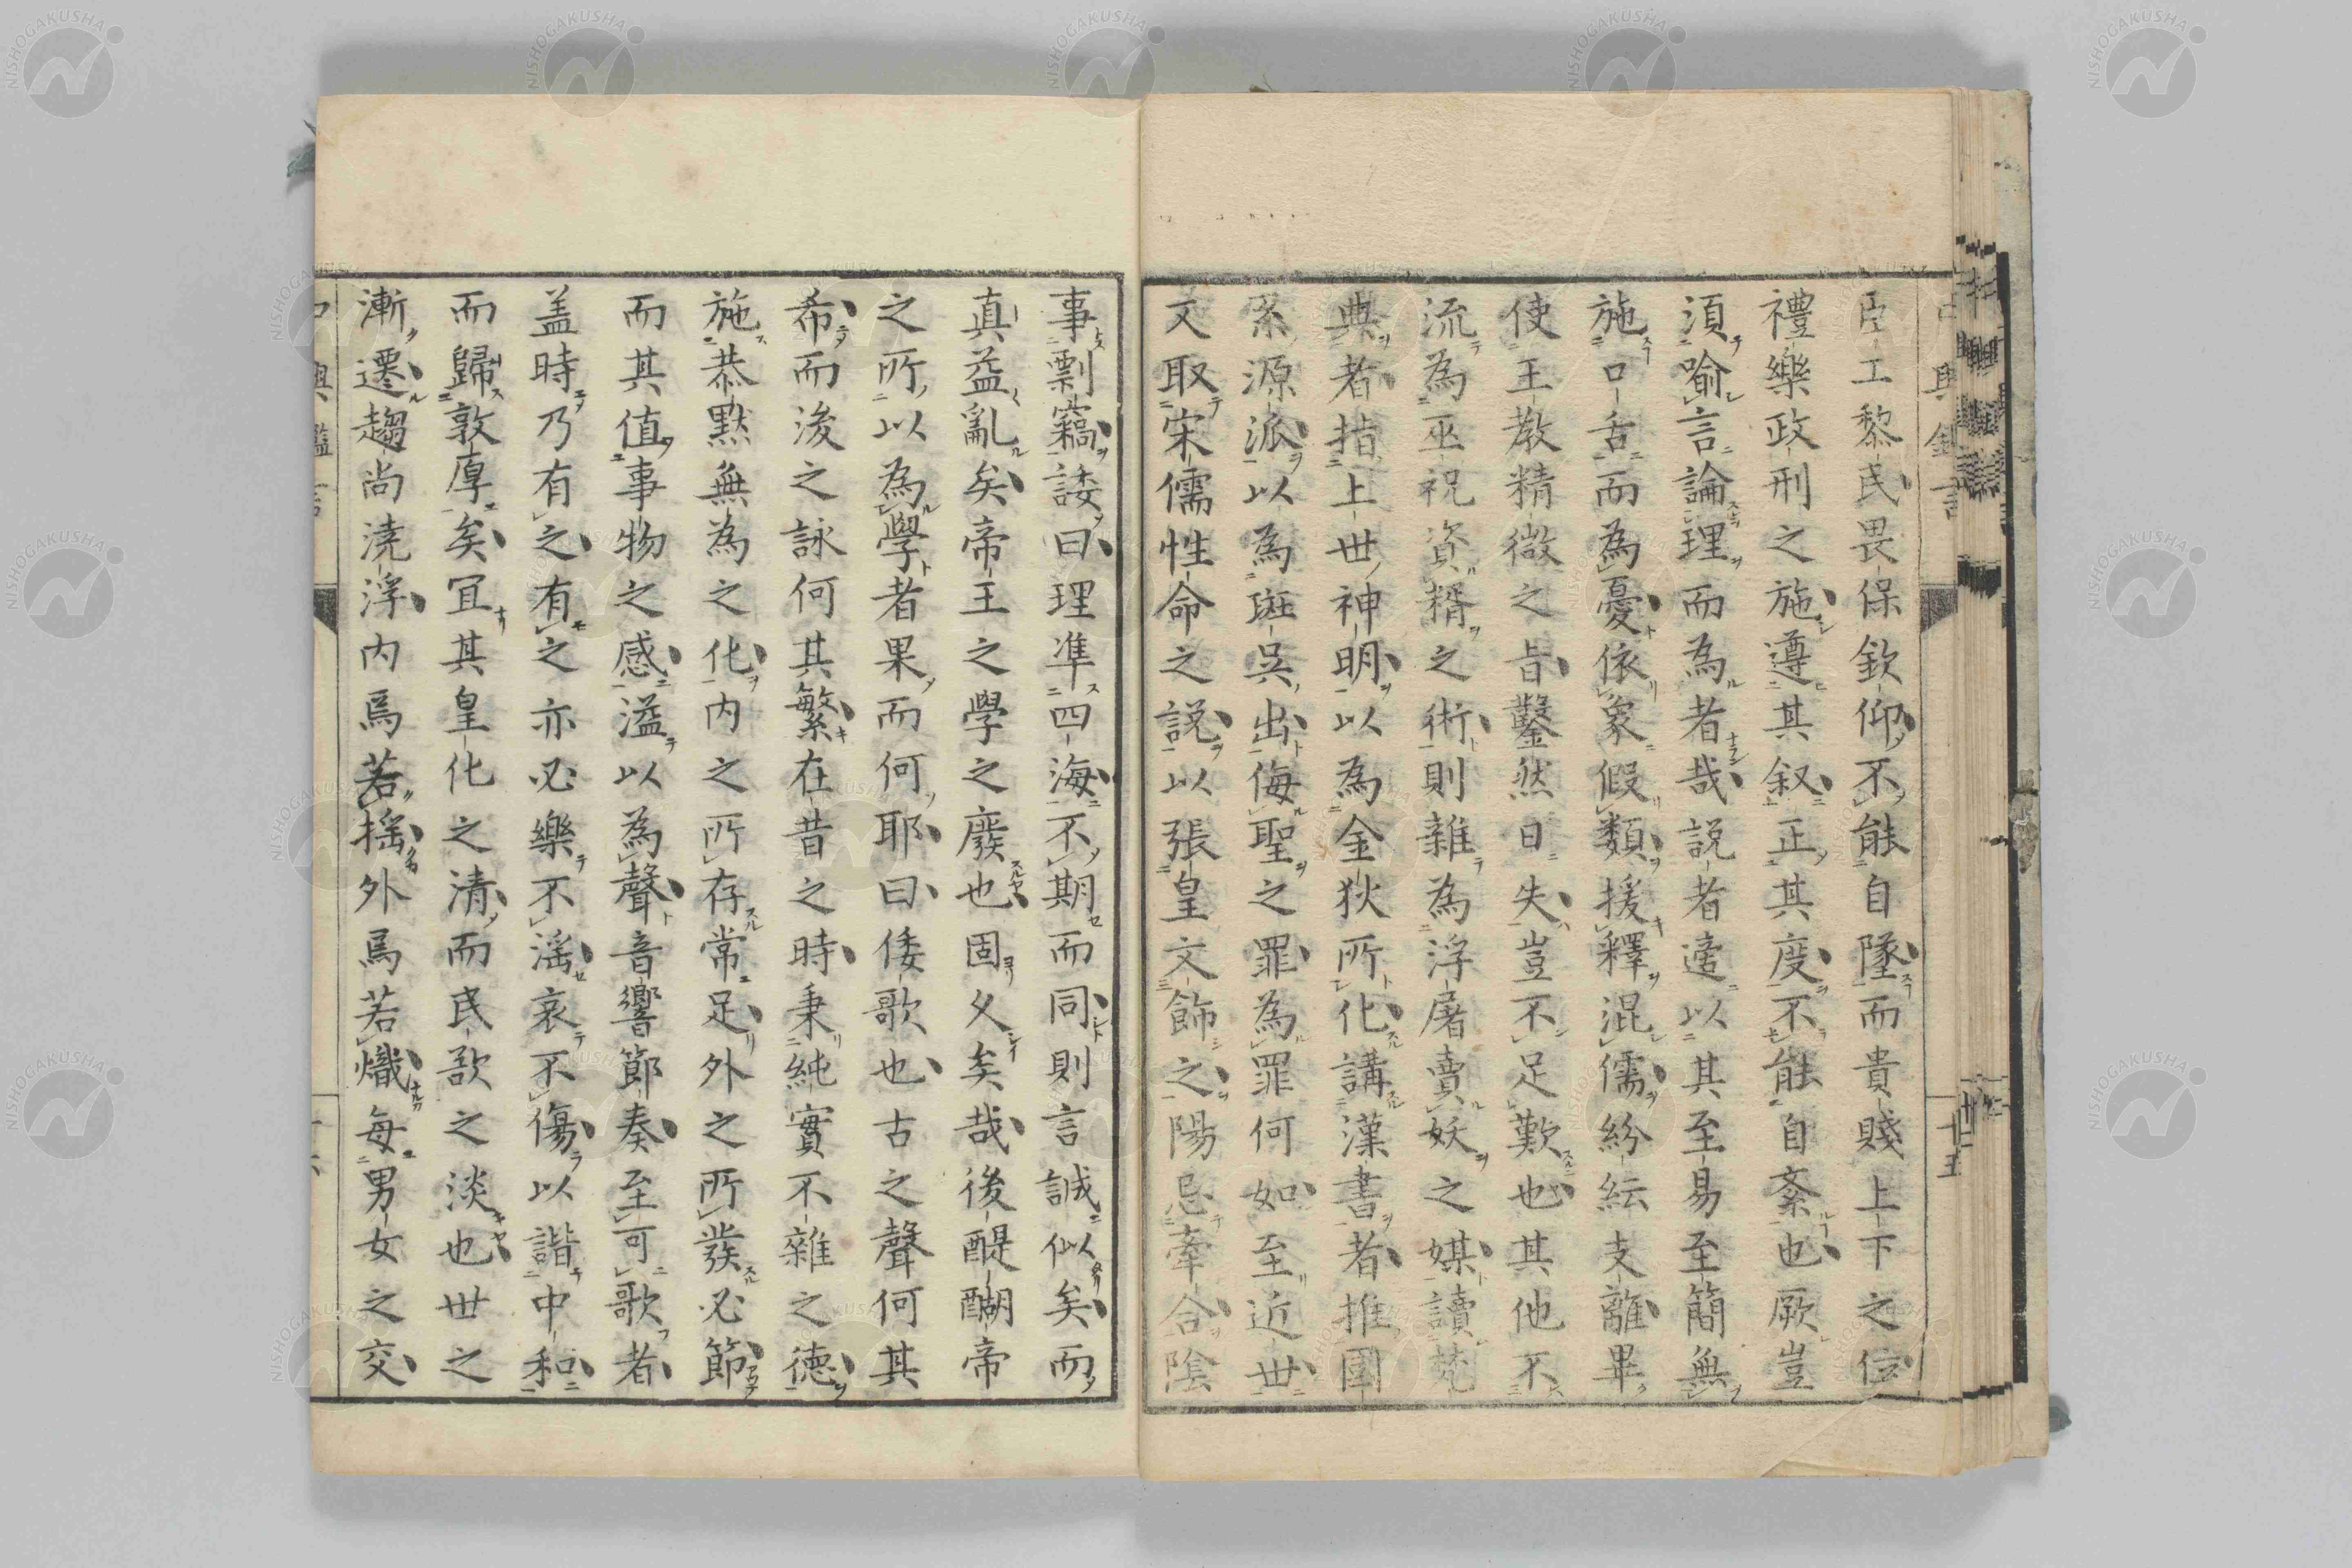 臣工黎民畏保欽仰不能自墜而貴賤上下之位
禮樂政刑之施遵其叙正其度不能自紊也厥豈
須喻言論理而為者哉説者遑以其至易至簡無
施口舌而為憂依象假類援釋混儒紛紜支離畢
使王教精微之旨鑿然日失豈不足歎也其他不
流為巫祝資糈之術則雜為浮屠賣妖之媒讀梵
典者指上世神明以為金狄所化講漢書者推國
系源派以為斑吳出侮聖之罪為罪何如至近世
又取宋儒性命之説以張皇文飾之陽忌牽合陰
事剽竊諉曰理準四海不期而同則言誠似矣而
真益亂矣帝王之學之廢也固久矣哉後醍醐帝
之所以為學者果而何耶曰倭歌也古之聲何其
希而後之詠何其繁在昔之時秉純實不雜之德
施恭默無為之化内之所存常足外之所發必節
而其値事物之感溢以為聲音響節奏至可歌者
盖時乃有之有之亦必樂不滛哀不傷以諧中和
而歸敦厚矣冝其皇化之清而民歌之淡也世之
漸遷趨尚澆浮内焉若搖外焉若熾毎男女之交
NISHOGAKUSHA